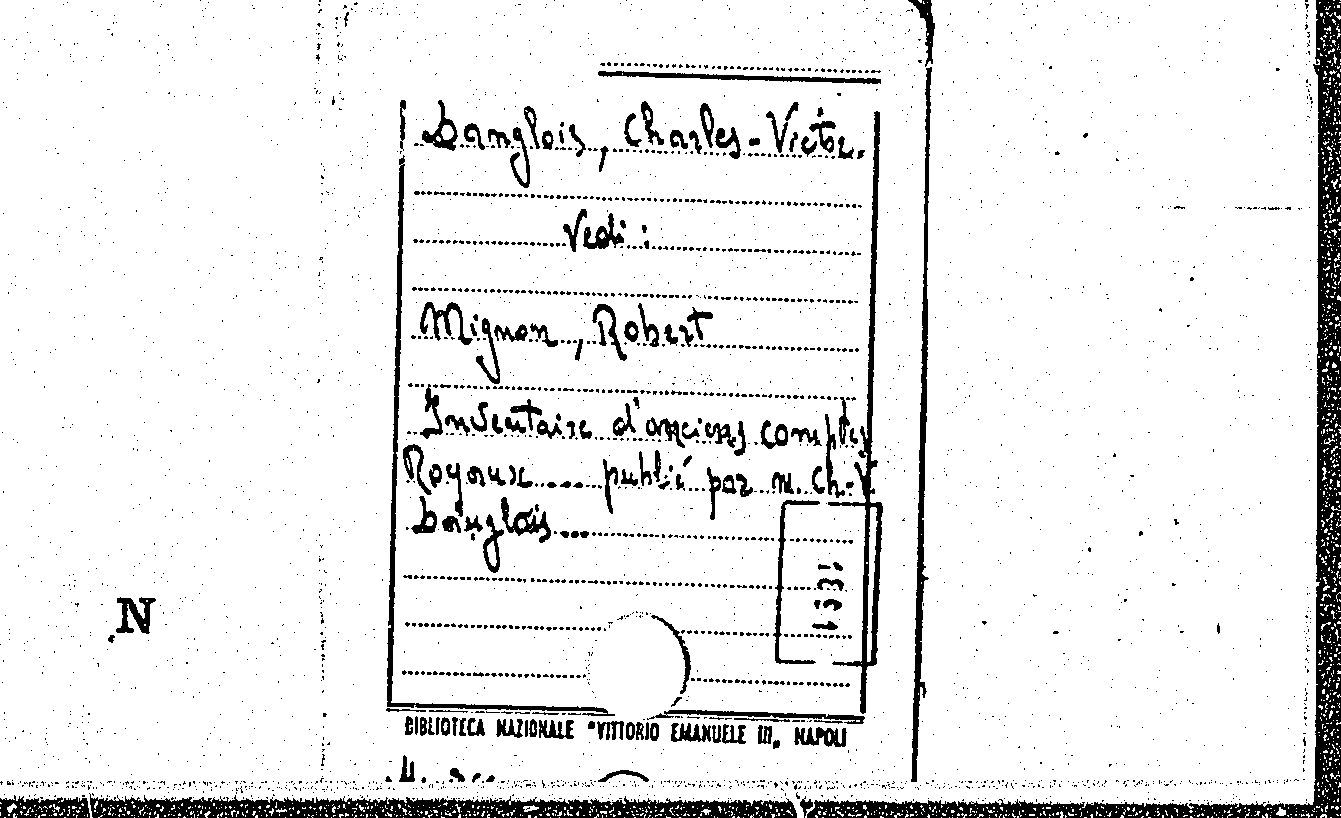 Langlois, Charles-Victor.
Vedi:
Mignon, Robert
Inventaire d'anciens comptes
Royaux.... publié par m. Ch-V.
Langlois...
N
BIBLIOTECA NAZIONALE "VITTORIO EMANUELE III„ NAPOLI